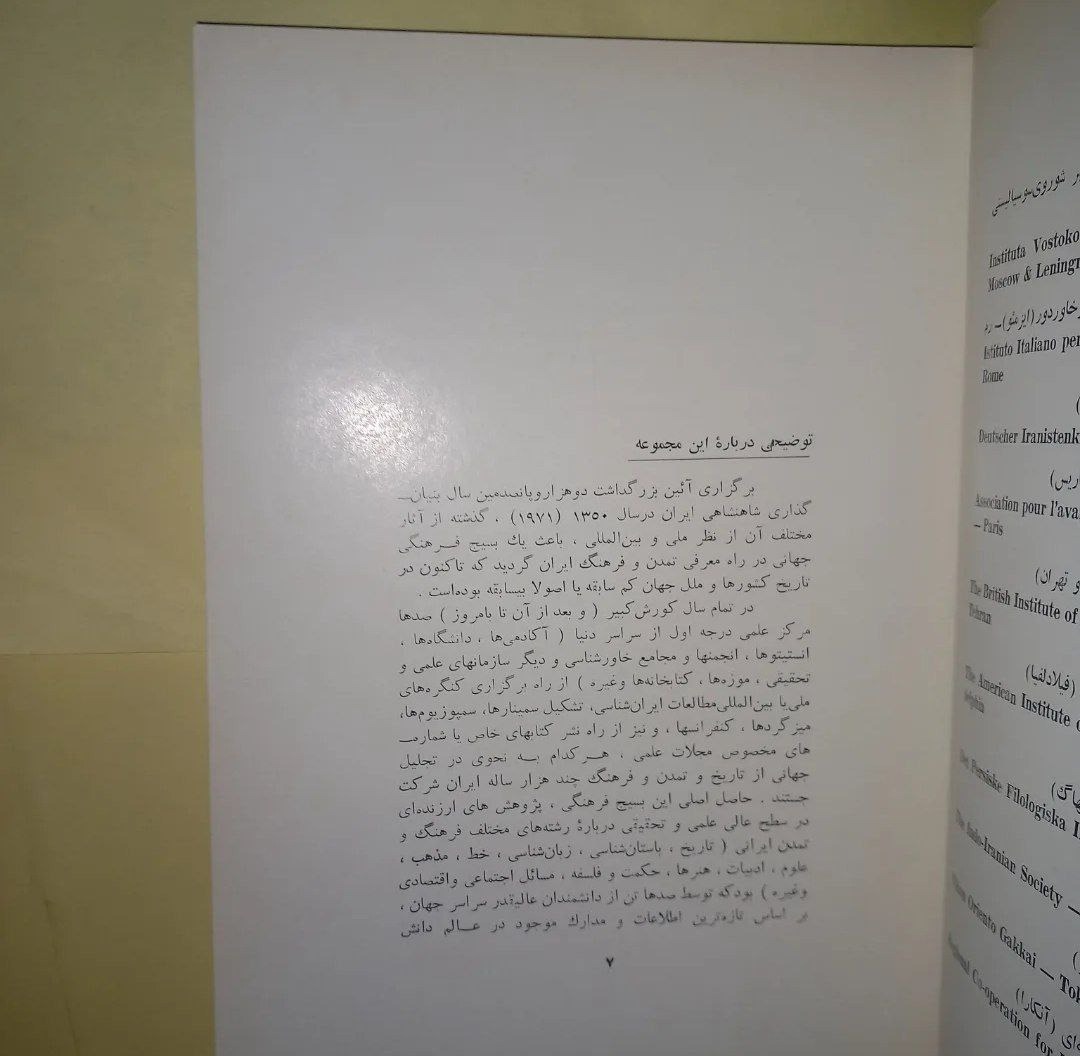 توضیحی دربارهٔ این مجموعه
برگزاری آئین بزرگداشت دوهزاروپانصدمین سال بنیان‌ــ
گذاری شاهنشاهی ایران درسال ۱۳۵۰ (۱۹۷۱) ، گذشته از آثار
مختلف آن از نظر ملی و بین‌المللی ، باعث یك بسیج فـرهنگی
جهانی در راه معرفی تمدن و فرهنگ ایران گردید که تاکنون در
تاریخ کشورها و ملل جهان کم سابقه یا اصولا بیسابقه بوده‌است .
در تمام سال کورش‌کبیر ( و بعد از آن تا بامروز ) صدها
مرکز علمی درجه اول از سراسر دنیا ( آکادمی‌ها ، دانشگاه‌ها ،
انستیتوها ، انجمنها و مجامع خاورشناسی و دیگر سازمانهای علمی و
تحقیقی ، موزه‌ها ، کتابخانه‌ها وغیره ) از راه برگزاری کنگره‌های
ملی‌یا بین‌المللی‌مطالعات ایران‌شناسی، تشکیل سمینارها، سمپوزیوم‌ها،
میزگردها ، کنفرانسها ، و نیز از راه نشر کتابهای خاص یا شماره‌ــ
های مخصوص مجلات علمی ، هرکدام بـه نحوی در تجلیل
جهانی از تاریخ و تمدن و فرهنگ چند هزار ساله ایران شرکت
جستند . حاصل اصلی این بسیج فرهنگی ، پژوهش های ارزنده‌ای
در سطح عالی علمی و تحقیقی دربارهٔ رشته‌های مختلف فرهنگ و
تمدن ایرانی ( تاریخ ، باستان‌شناسی ، زبان‌شناسی ، خط ، مذهب ،
علوم ، ادبیات ، هنرها ، حکمت و فلسفه ، مسائل اجتماعی واقتصادی
وغیره ) بودکه توسط صدها تن از دانشمندان عالیقدر سراسر جهان ،
بر اساس تازه‌ترین اطلاعات و مدارك موجود در عـالم دانش
۷
شوروی‌سوسیالیستی
Instituta Vostoko
Moscow & Leningr
خاوردور (ایزمئو) – رم
Istituto Italiano per
Rome
Deutscher Iranistenk
Association pour l'ava
– Paris
و تهران)
The British Institute of
Tehran
(فیلادلفیا)
The American Institute o
delphia
Det Persiske Filologiska I
The Indo-Iranian Society —
Oriento Gakkai — Tok
(آنکارا)
Co-operation for